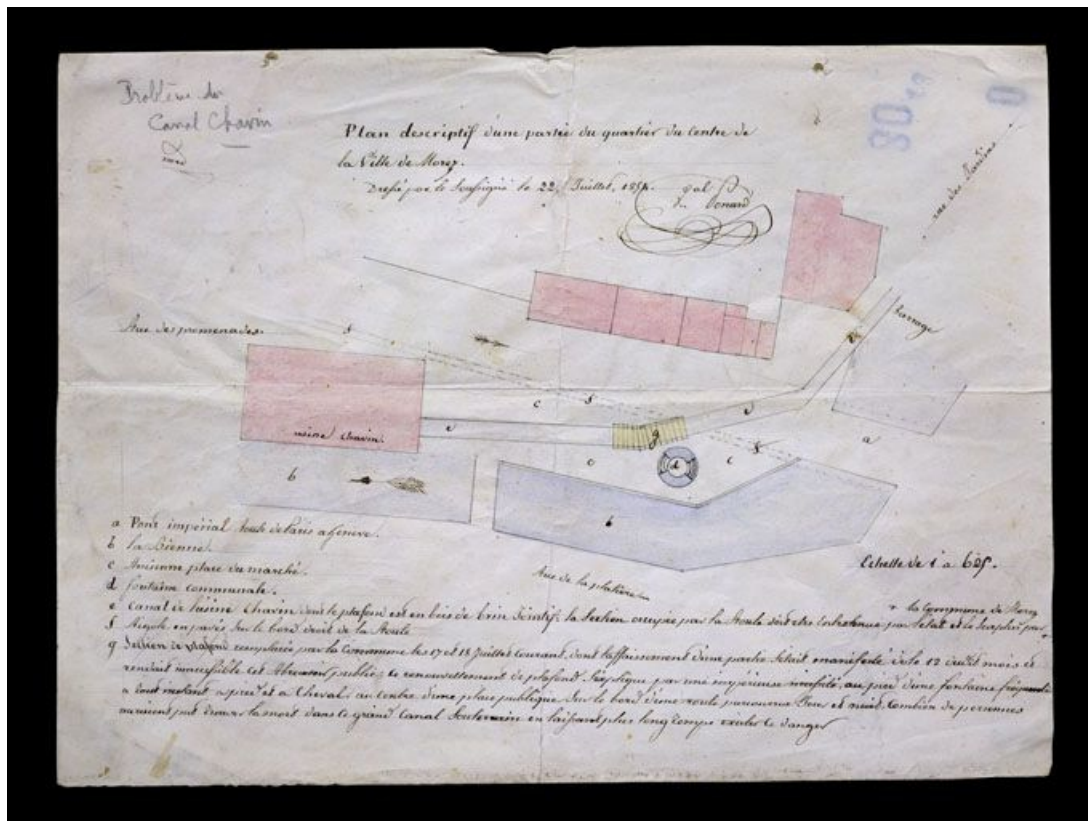 Problème du
Canal Chavin
Plan descriptif d'une partie du quartier du centre de
la Ville de Morez.
Dressé par le Soussigné le 22, Juillet, 1854.
rue des Jardins
Barrage
Rue des promenades.
f
c
f
e
e
g
d
c
f
c
a
usine chavin.
b
b
Rue de la platière
Echelle de 1 a 625.
a Pont impérial route de Paris a Geneve.
b la Bienne.
c Ancienne place du marché.
d fontaine communale.
e Canal de l'usine Chavin dont le plafond est en bois de brin jointif, la section occupée par la Route doit être entretenue par l'état et le surplus par +
+ la Commune de Morez
f Rigole en pavés sur le bord droit de la Route
g Section de plafond remplacée par la Commune les 17 et 18 Juillet courant, dont l'affaissement d'une partie s'était manifesté dès le 12 dudit mois et
rendait inaccessible cet Abreuvoir public; ce renouvellement de plafond s'explique par une impérieuse nécessité, au pied d'une fontaine fréquentée
a tout instant a pied et a Cheval, au centre d'une place publique, sur le bord d'une route parcourue Jour et nuit, Combien de personnes
auraient put trouver la mort dans ce grand Canal Souterrain en laissant plus long temps exister ce danger